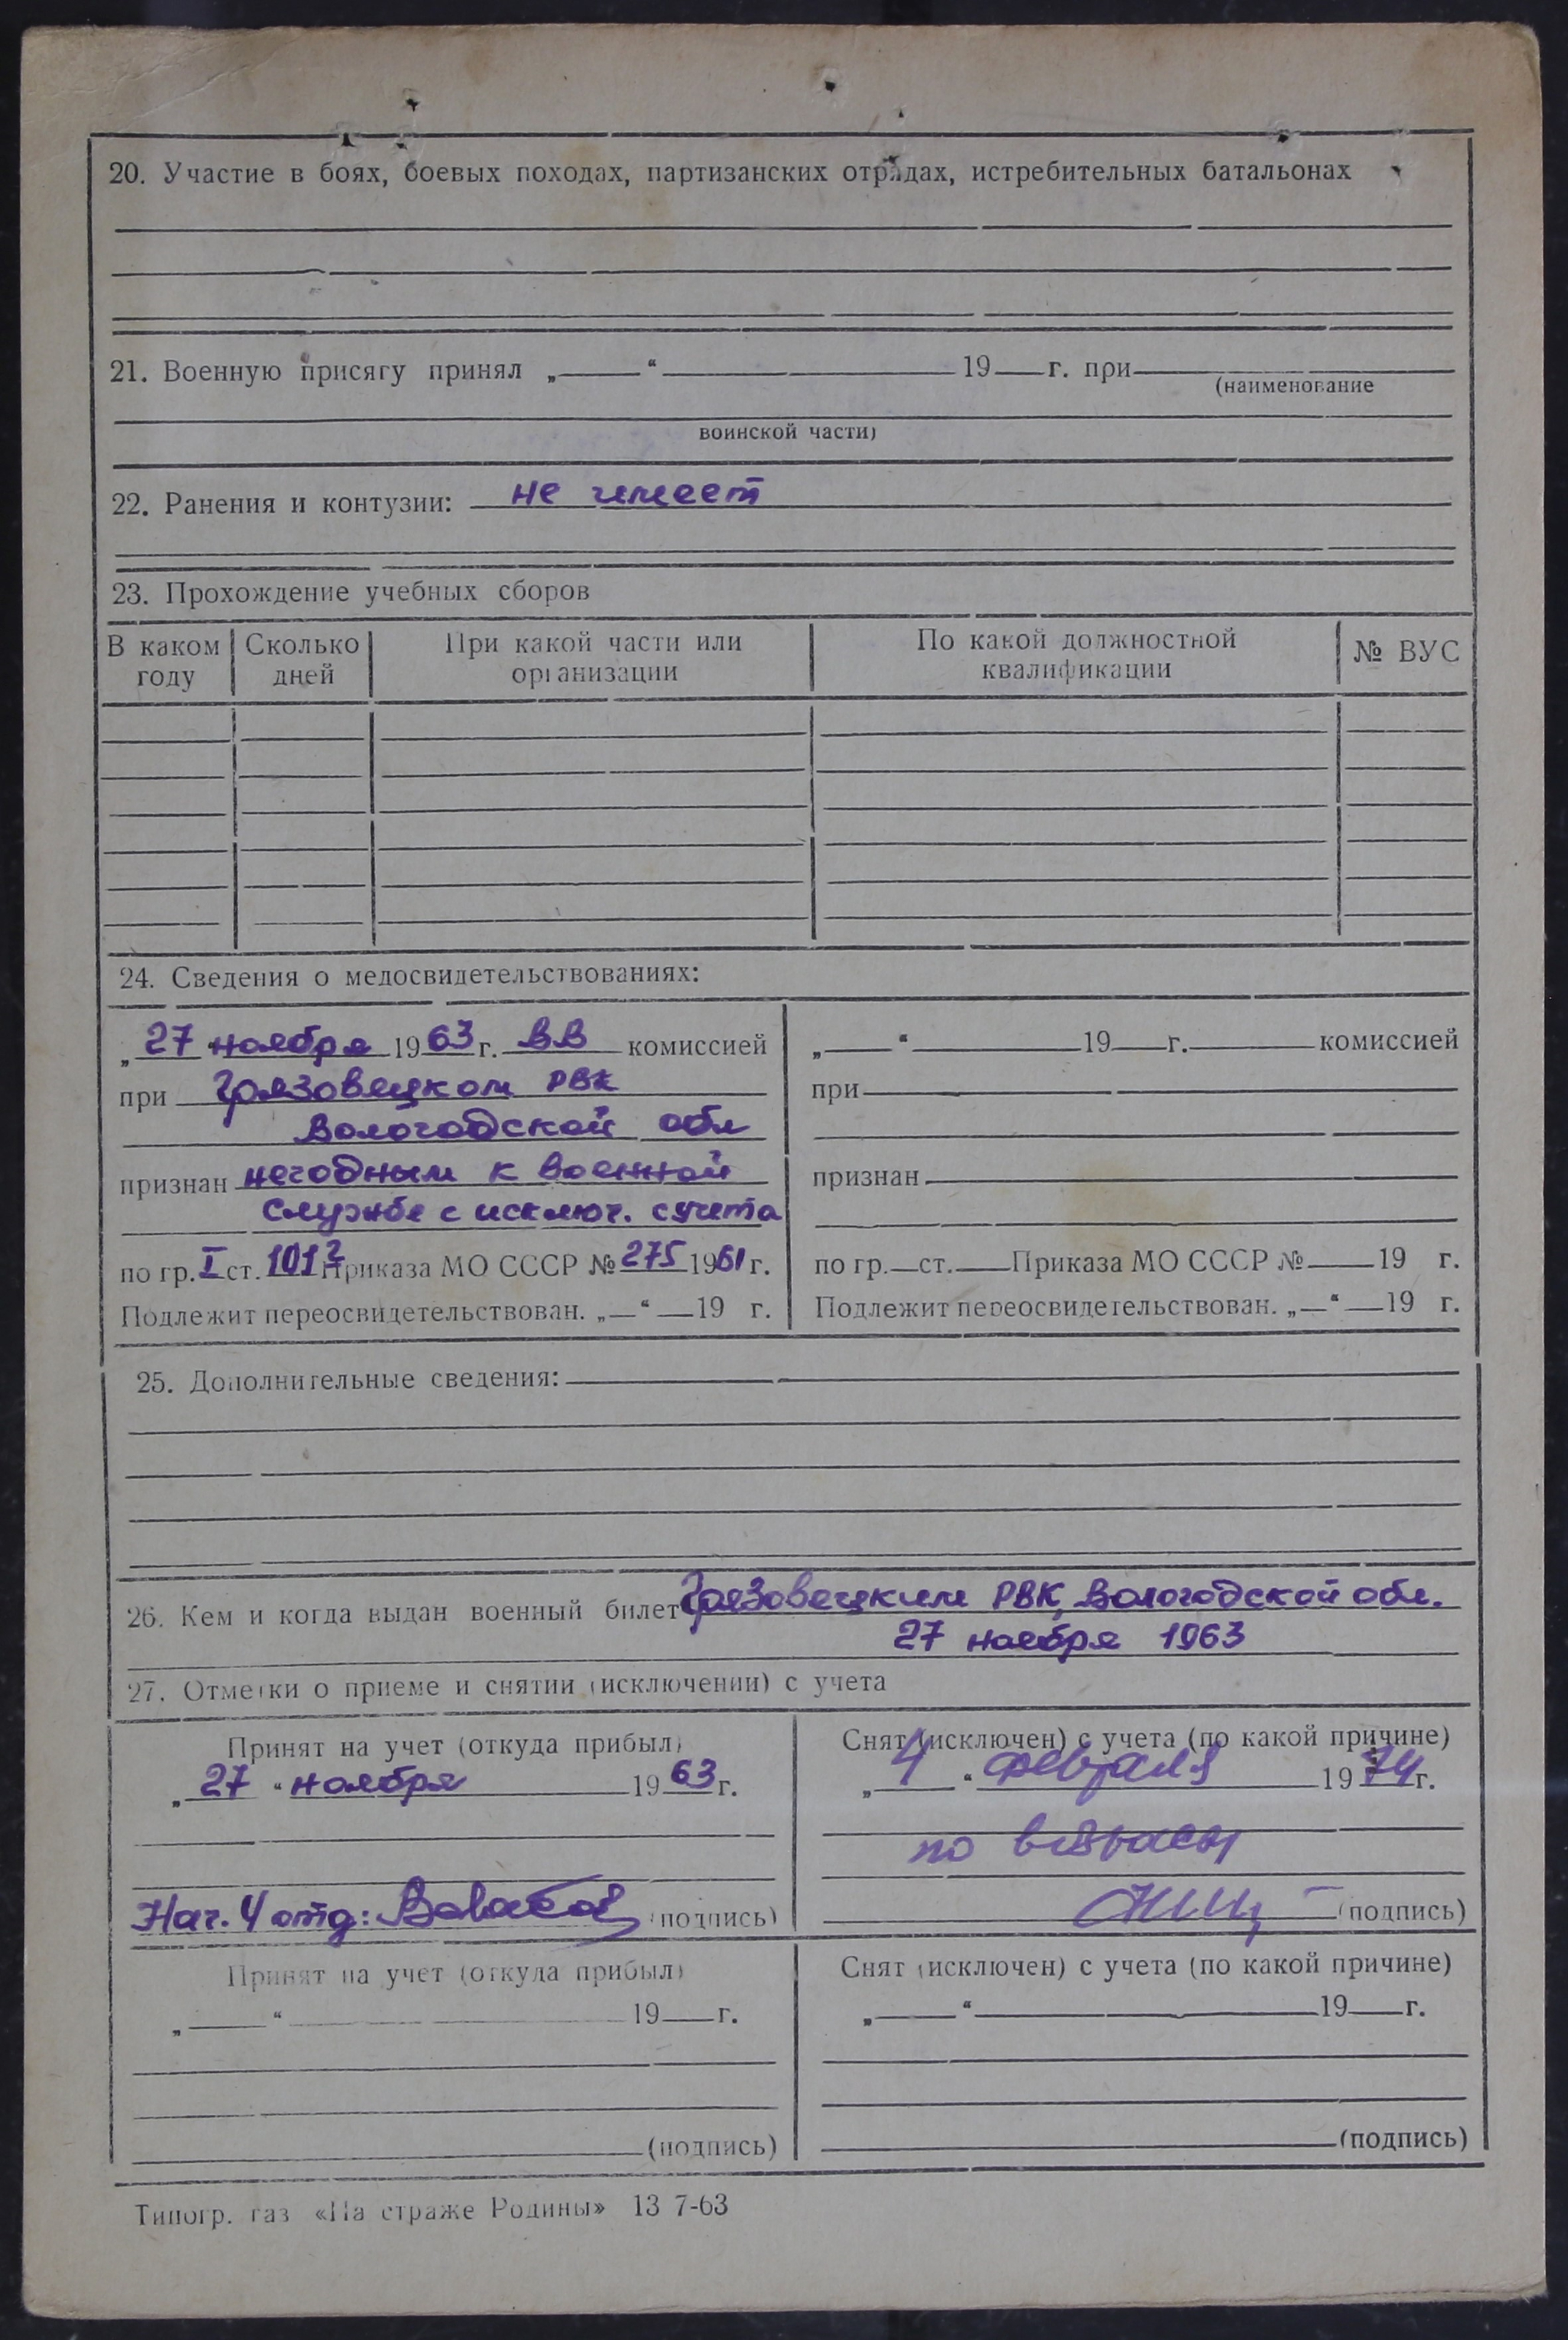 20. Участие в боях, боевых походах, партизанских отрядах, истребительных батальонах
21. Военную присягу принял „ “ 19 г. при
(наименование
воинской части)
22. Ранения и контузии: не имеет
23. Прохождение учебных сборов
В каком году
Сколько дней
При какой части или организации
По какой должностной квалификации
№ ВУС
24. Сведения о медосвидетельствованиях:
„27 ноября 1963 г. ВВ комиссией
при Грязовецком РВК
Вологодской обл
признан негодным к военной
службе с исключ. с учета
по гр. I ст. 101² Приказа МО СССР № 275 1961 г.
Подлежит переосвидетельствован. „ “ 19 г.
„ “ 19 г. комиссией
при
признан
по гр. ст. Приказа МО СССР № 19 г.
Подлежит переосвидетельствован. „ “ 19 г.
25. Дополнительные сведения:
26. Кем и когда выдан военный билет Грязовецким РВК, Вологодской обл.
27 ноября 1963
27. Отметки о приеме и снятии (исключении) с учета
Принят на учет (откуда прибыл)
„27 “ ноября 1963 г.
Нач. 4 отд: (подпись)
Снят (исключен) с учета (по какой причине)
„4 “ февраля 1974 г.
по
(подпись)
Принят на учет (откуда прибыл)
„ “ 19 г.
(подпись)
Снят (исключен) с учета (по какой причине)
„ “ 19 г.
(подпись)
Типогр. газ «На страже Родины» 13 7-63